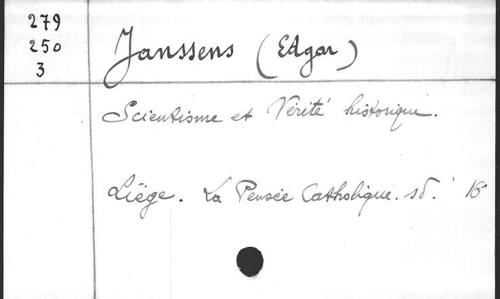 279
250
3
Janssens (Edgar)
Scientisme et Vérité historique.
Liège. La Pensée Catholique. sd. 16°